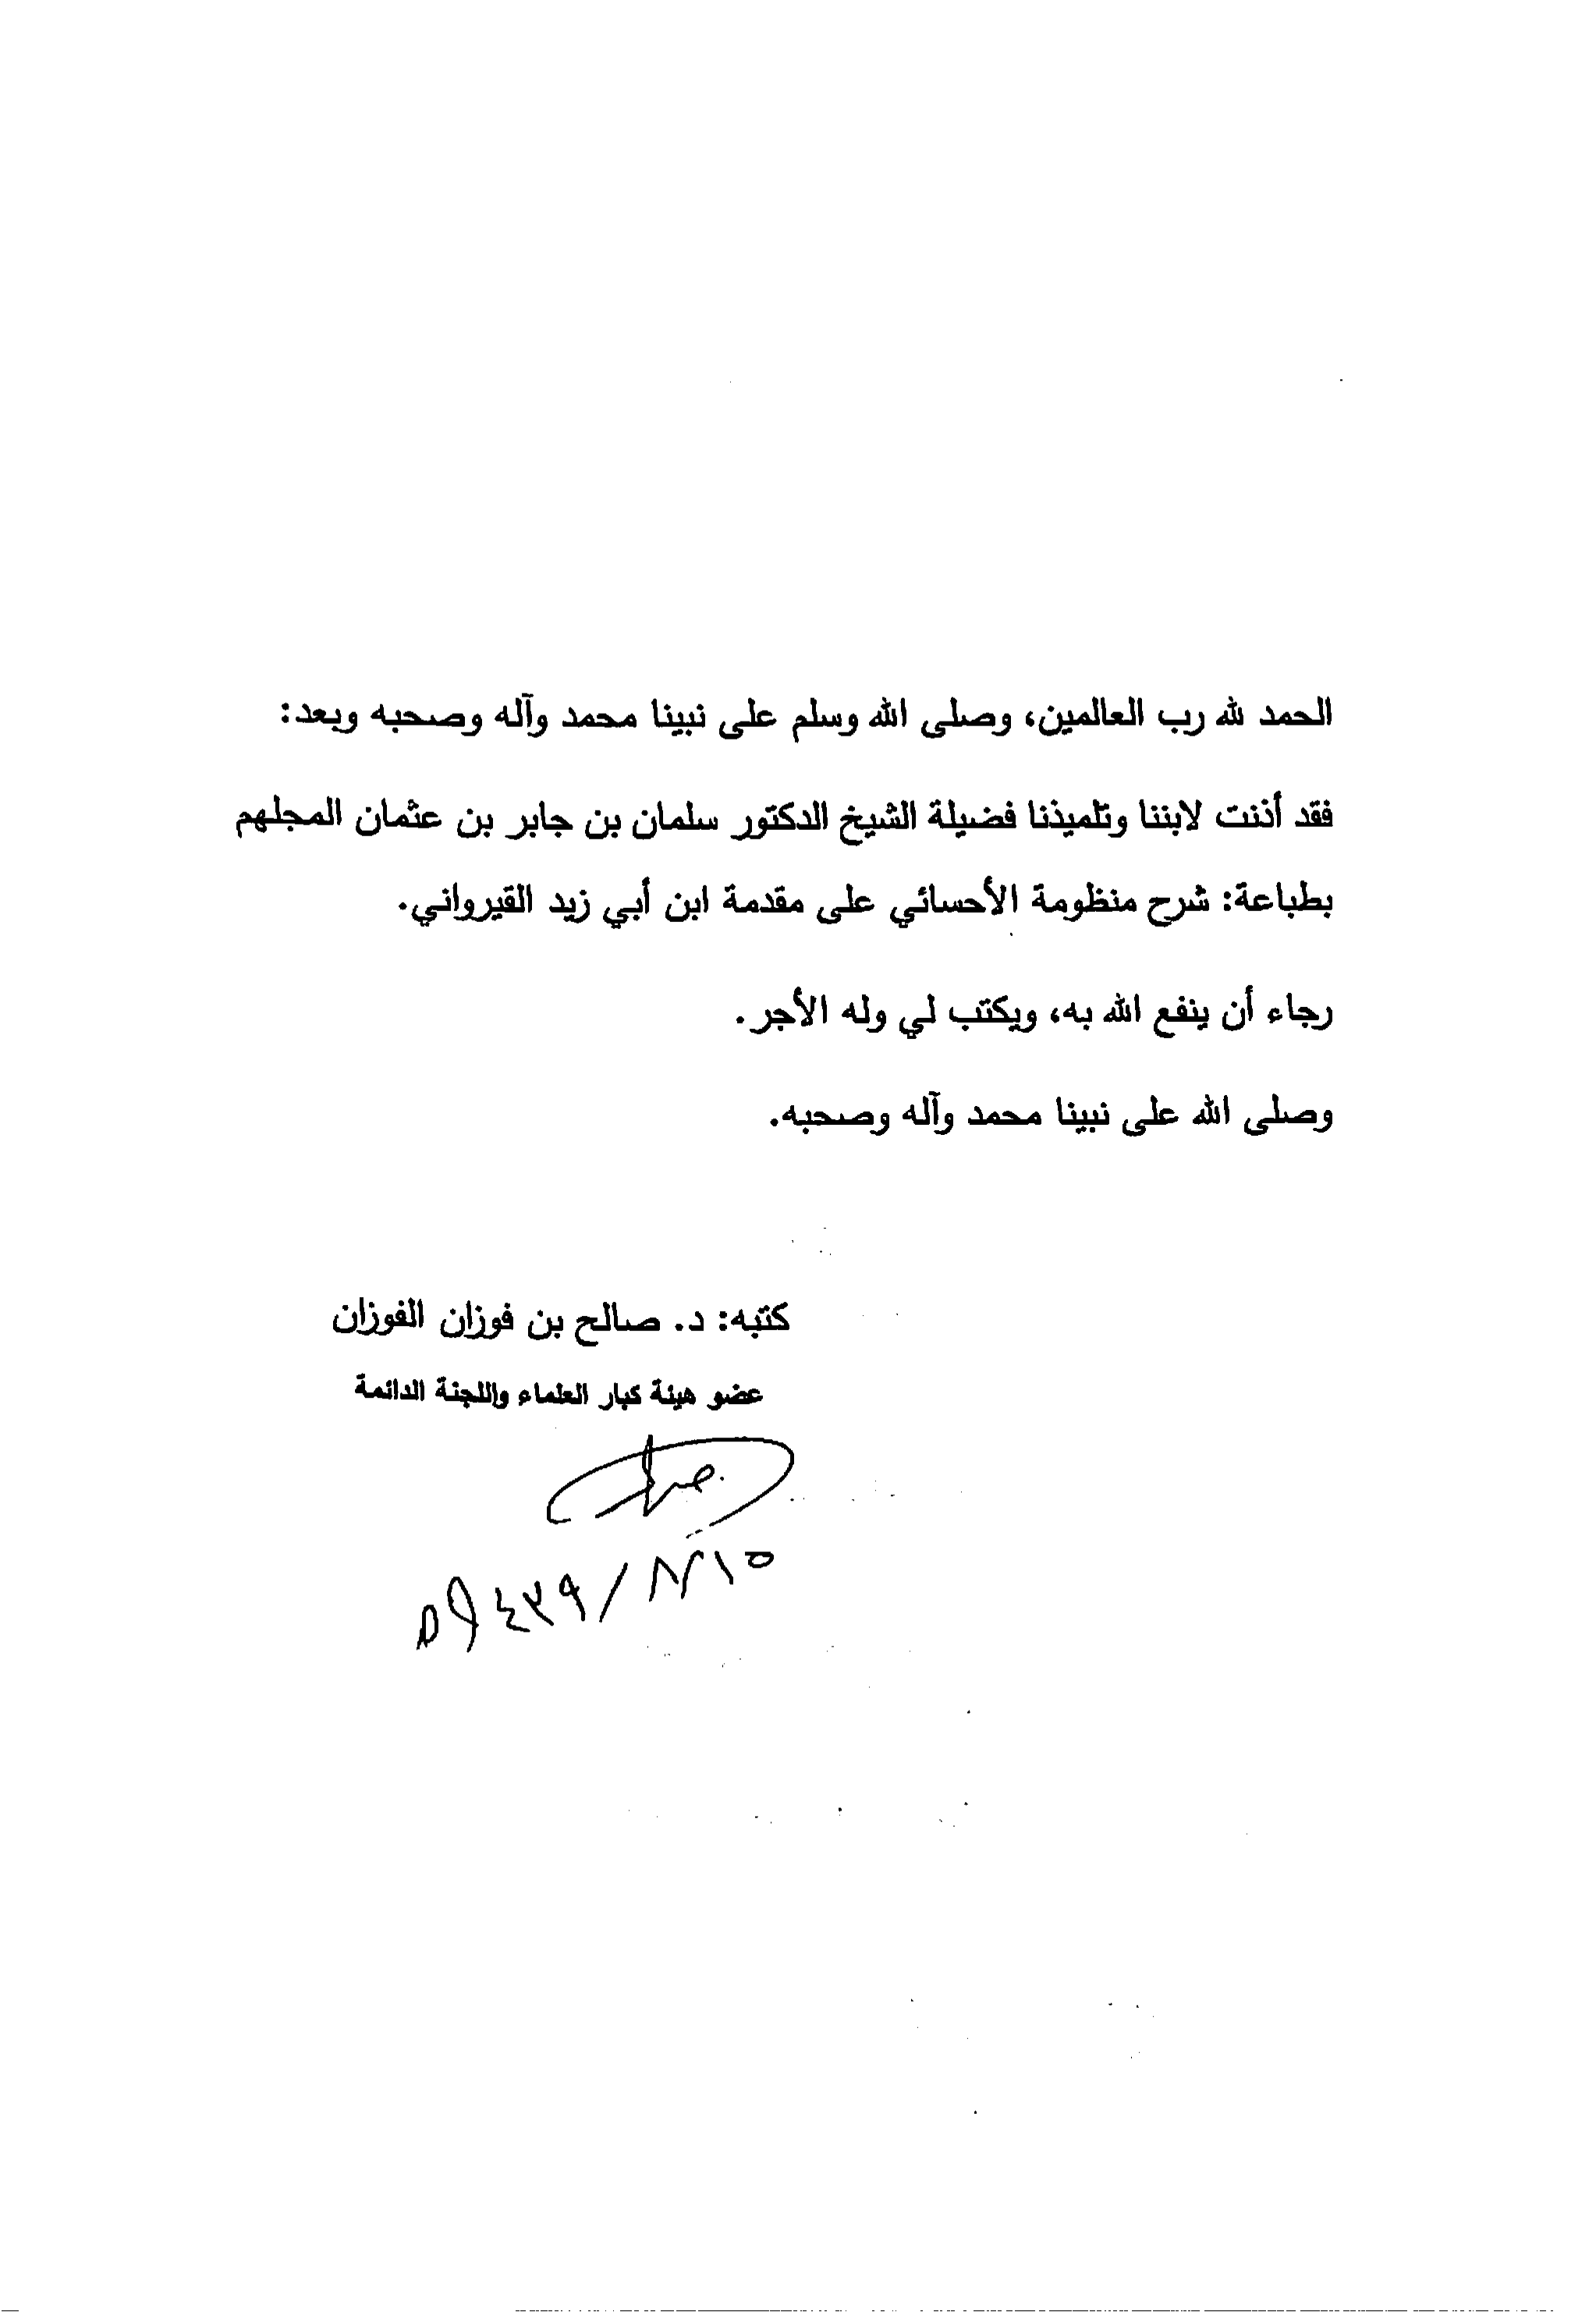 الحمد لله رب العالمين، وصلى الله وسلم على نبينا محمد وآله وصحبه وبعد:
فقد أذنت لابننا وتلميذنا فضيلة الشيخ الدكتور سلمان بن جابر بن عثمان المجلهم
بطباعة: شرح منظومة الأحسائي على مقدمة ابن أبي زيد القيرواني.
رجاء أن ينفع الله به، ويكتب لي وله الأجر.
وصلى الله على نبينا محمد وآله وصحبه.
كتبه: د. صالح بن فوزان الفوزان
عضو هيئة كبار العلماء واللجنة الدائمة